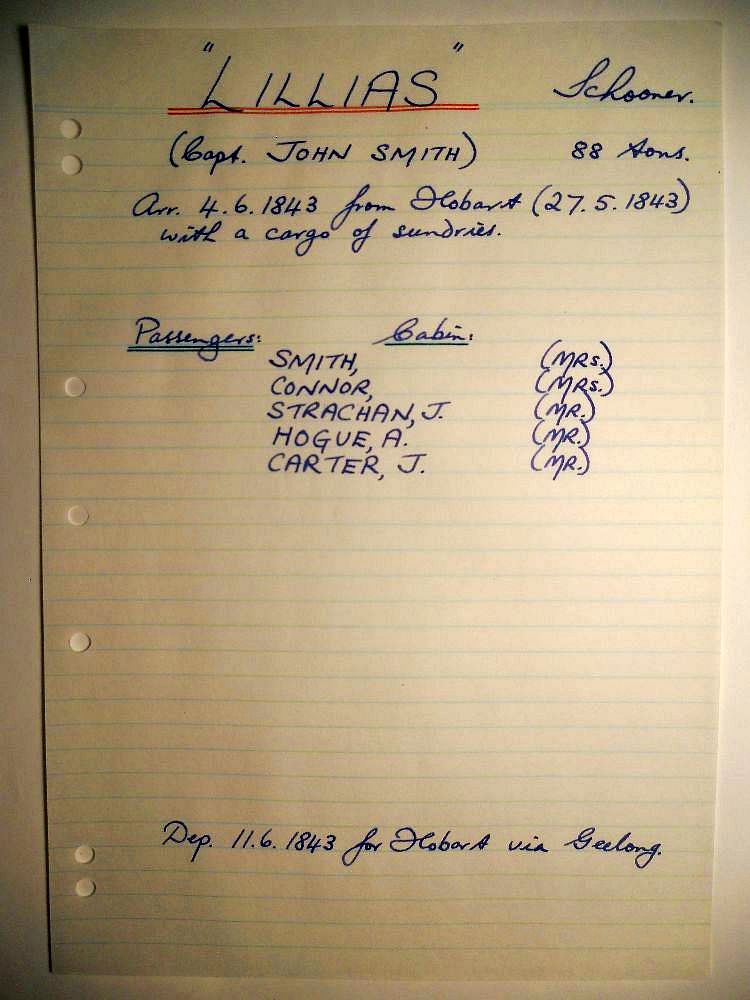 "LILLIAS" Schooner.
(Capt. JOHN SMITH) 88 tons.
Arr. 4.6.1843 from Hobart (27.5.1843)
with a cargo of sundries.
Passengers: Cabin:
SMITH, (MRS.)
CONNOR, (MRS.)
STRACHAN, J. (MR.)
HOGUE, A. (MR.)
CARTER, J. (MR.)
Dep. 11.6.1843 for Hobart via Geelong.